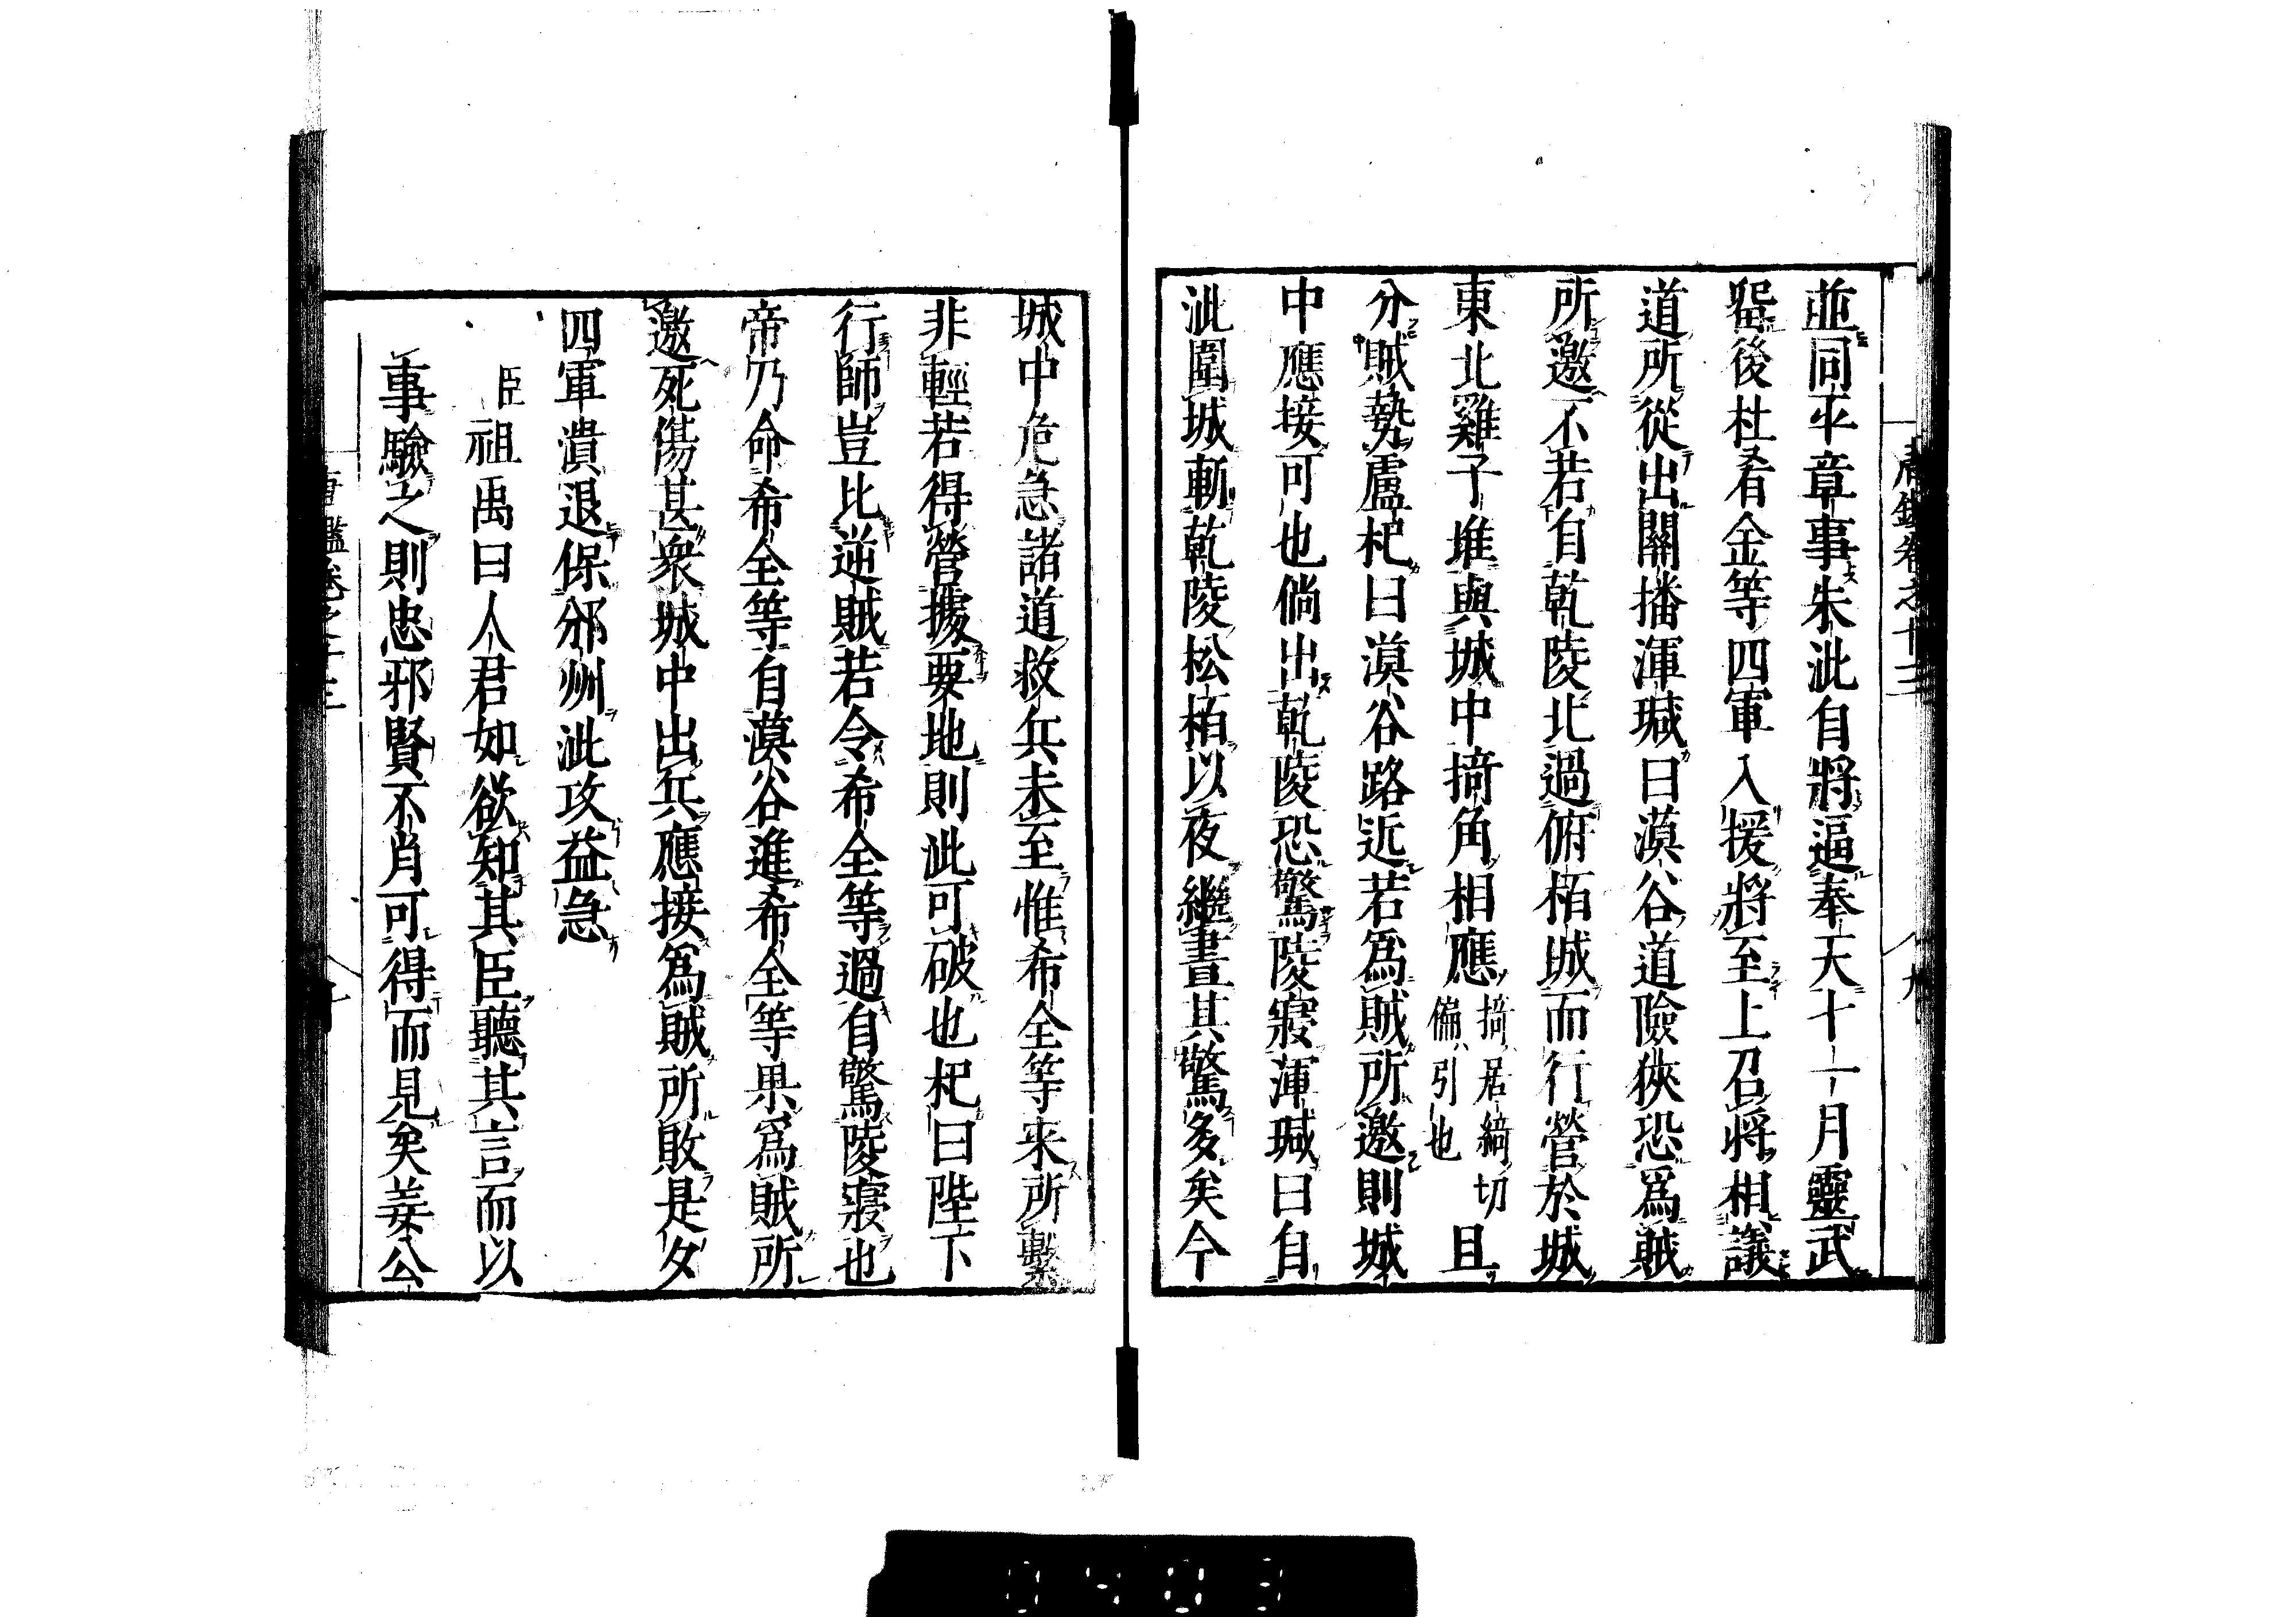 唐鑑卷之十三 九
並同平章事朱泚自將逼奉天十一月靈武
畱後杜希全等四軍入援將至上召將相議
道所從出關播渾瑊曰漠谷道險狹恐爲賊
所邀不若自乾陵北過俯栢城而行營於城
東北雞子堆與城中掎角相應掎居綺切偏引也且
分賊勢盧杞曰漠谷路近若爲賊所邀則城
中應接可也倘出乾陵恐驚陵寢渾瑊曰自
泚圍城斬乾陵松栢以夜繼晝其驚多矣今
城中危急諸道救兵未至惟希全等來所繫
非輕若得營據要地則泚可破也杞曰陛下
行師豈比逆賊若令希全等過自驚陵寢也
帝乃命希全等自漠谷進希全等果爲賊所
邀死傷甚衆城中出兵應接爲賊所敗是夕
四軍潰退保邠州泚攻益急
臣祖禹曰人君如欲知其臣聽其言而以
事驗之則忠邪賢不肖可得而見矣姜公